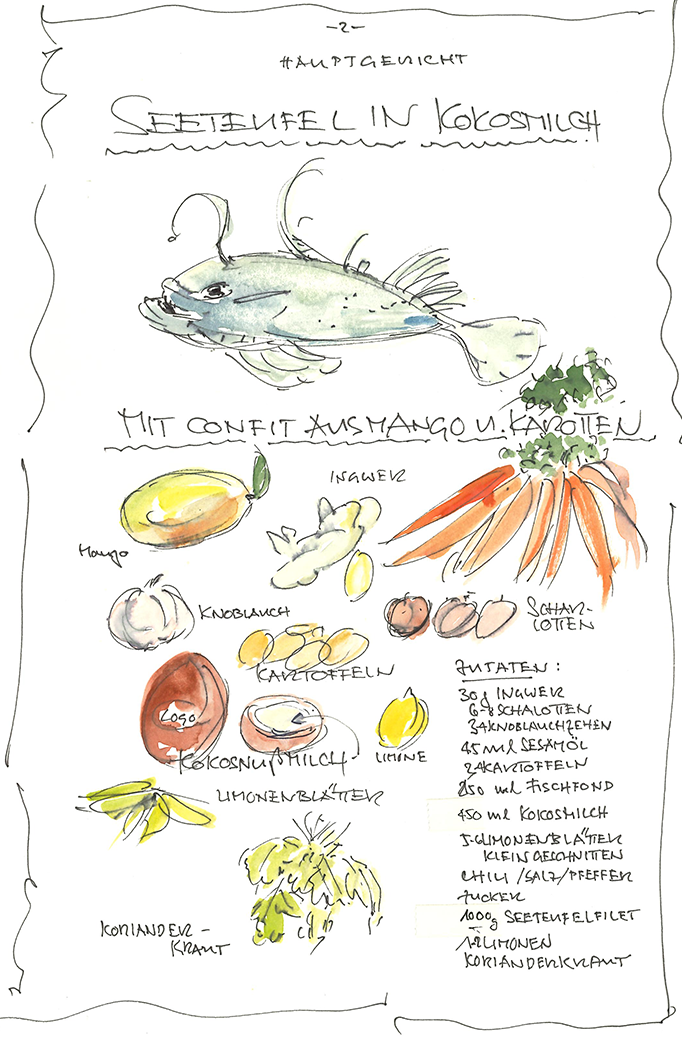 -2-
HAUPTGERICHT
SEETEUFEL IN KOKOSMILCH
MIT CONFIT AUS MANGO U. KAROTTEN
INGWER
Mango
KNOBLAUCH
SCHAR-
LOTTEN
KARTOFFELN
KOKOSNUßMILCH
LIMONE
LIMONENBLÄTTER
KORIANDER-
KRAUT
ZUTATEN:
30g INGWER
6-8 SCHALOTTEN
3-4 KNOBLAUCHZEHEN
45 ml SESAMÖL
2 KARTOFFELN
250 ml FISCHFOND
450 ml KOKOSMILCH
5-6 LIMONENBLÄTTER
KLEIN GESCHNITTEN
CHILI / SALZ / PFEFFER
ZUCKER
1000g SEETEUFELFILET
1-2 LIMONEN
KORIANDERKRAUT